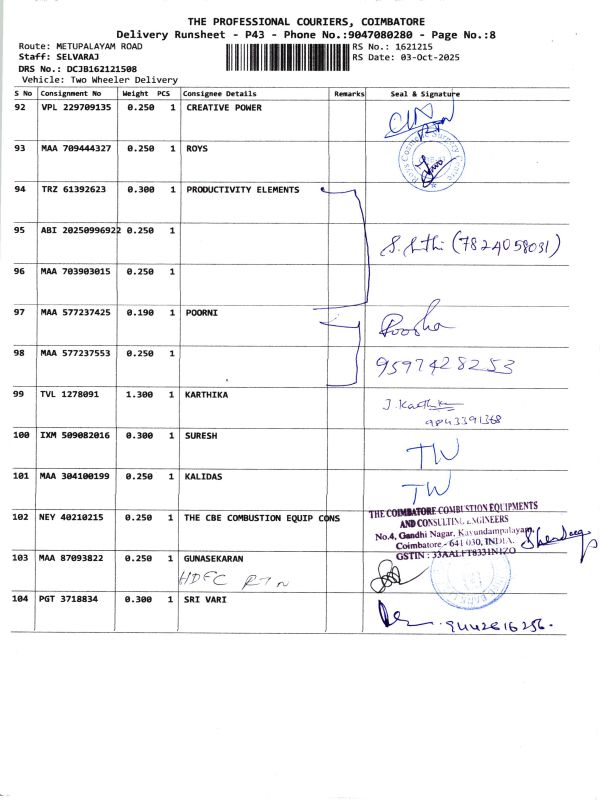 THE PROFESSIONAL COURIERS, COIMBATORE
Delivery Runsheet - P43 - Phone No.:9047080280 - Page No.:8
Route: METUPALAYAM ROAD RS No.: 1621215
Staff: SELVARAJ RS Date: 03-Oct-2025
DRS No.: DCJB162121508
Vehicle: Two Wheeler Delivery
S No Consignment No Weight PCS Consignee Details Remarks Seal & Signature
92 VPL 229709135 0.250 1 CREATIVE POWER
93 MAA 709444327 0.250 1 ROYS
94 TRZ 61392623 0.300 1 PRODUCTIVITY ELEMENTS
95 ABI 20250996922 0.250 1
(7824058031)
96 MAA 703903015 0.250 1
97 MAA 577237425 0.190 1 POORNI
98 MAA 577237553 0.250 1
9597428253
99 TVL 1278091 1.300 1 KARTHIKA
J. Karthika
9843391368
100 IXM 509082016 0.300 1 SURESH
TW
101 MAA 304100199 0.250 1 KALIDAS
TW
102 NEY 40210215 0.250 1 THE CBE COMBUSTION EQUIP CONS
THE COIMBATORE COMBUSTION EQUIPMENTS
AND CONSULTING ENGINEERS
No.4, Gandhi Nagar, Kavundampalayam,
Coimbatore - 641 030, INDIA.
GSTIN : 33AALFT8331N1ZO
103 MAA 87093822 0.250 1 GUNASEKARAN
HDFC RTN
104 PGT 3718834 0.300 1 SRI VARI
9442616256.